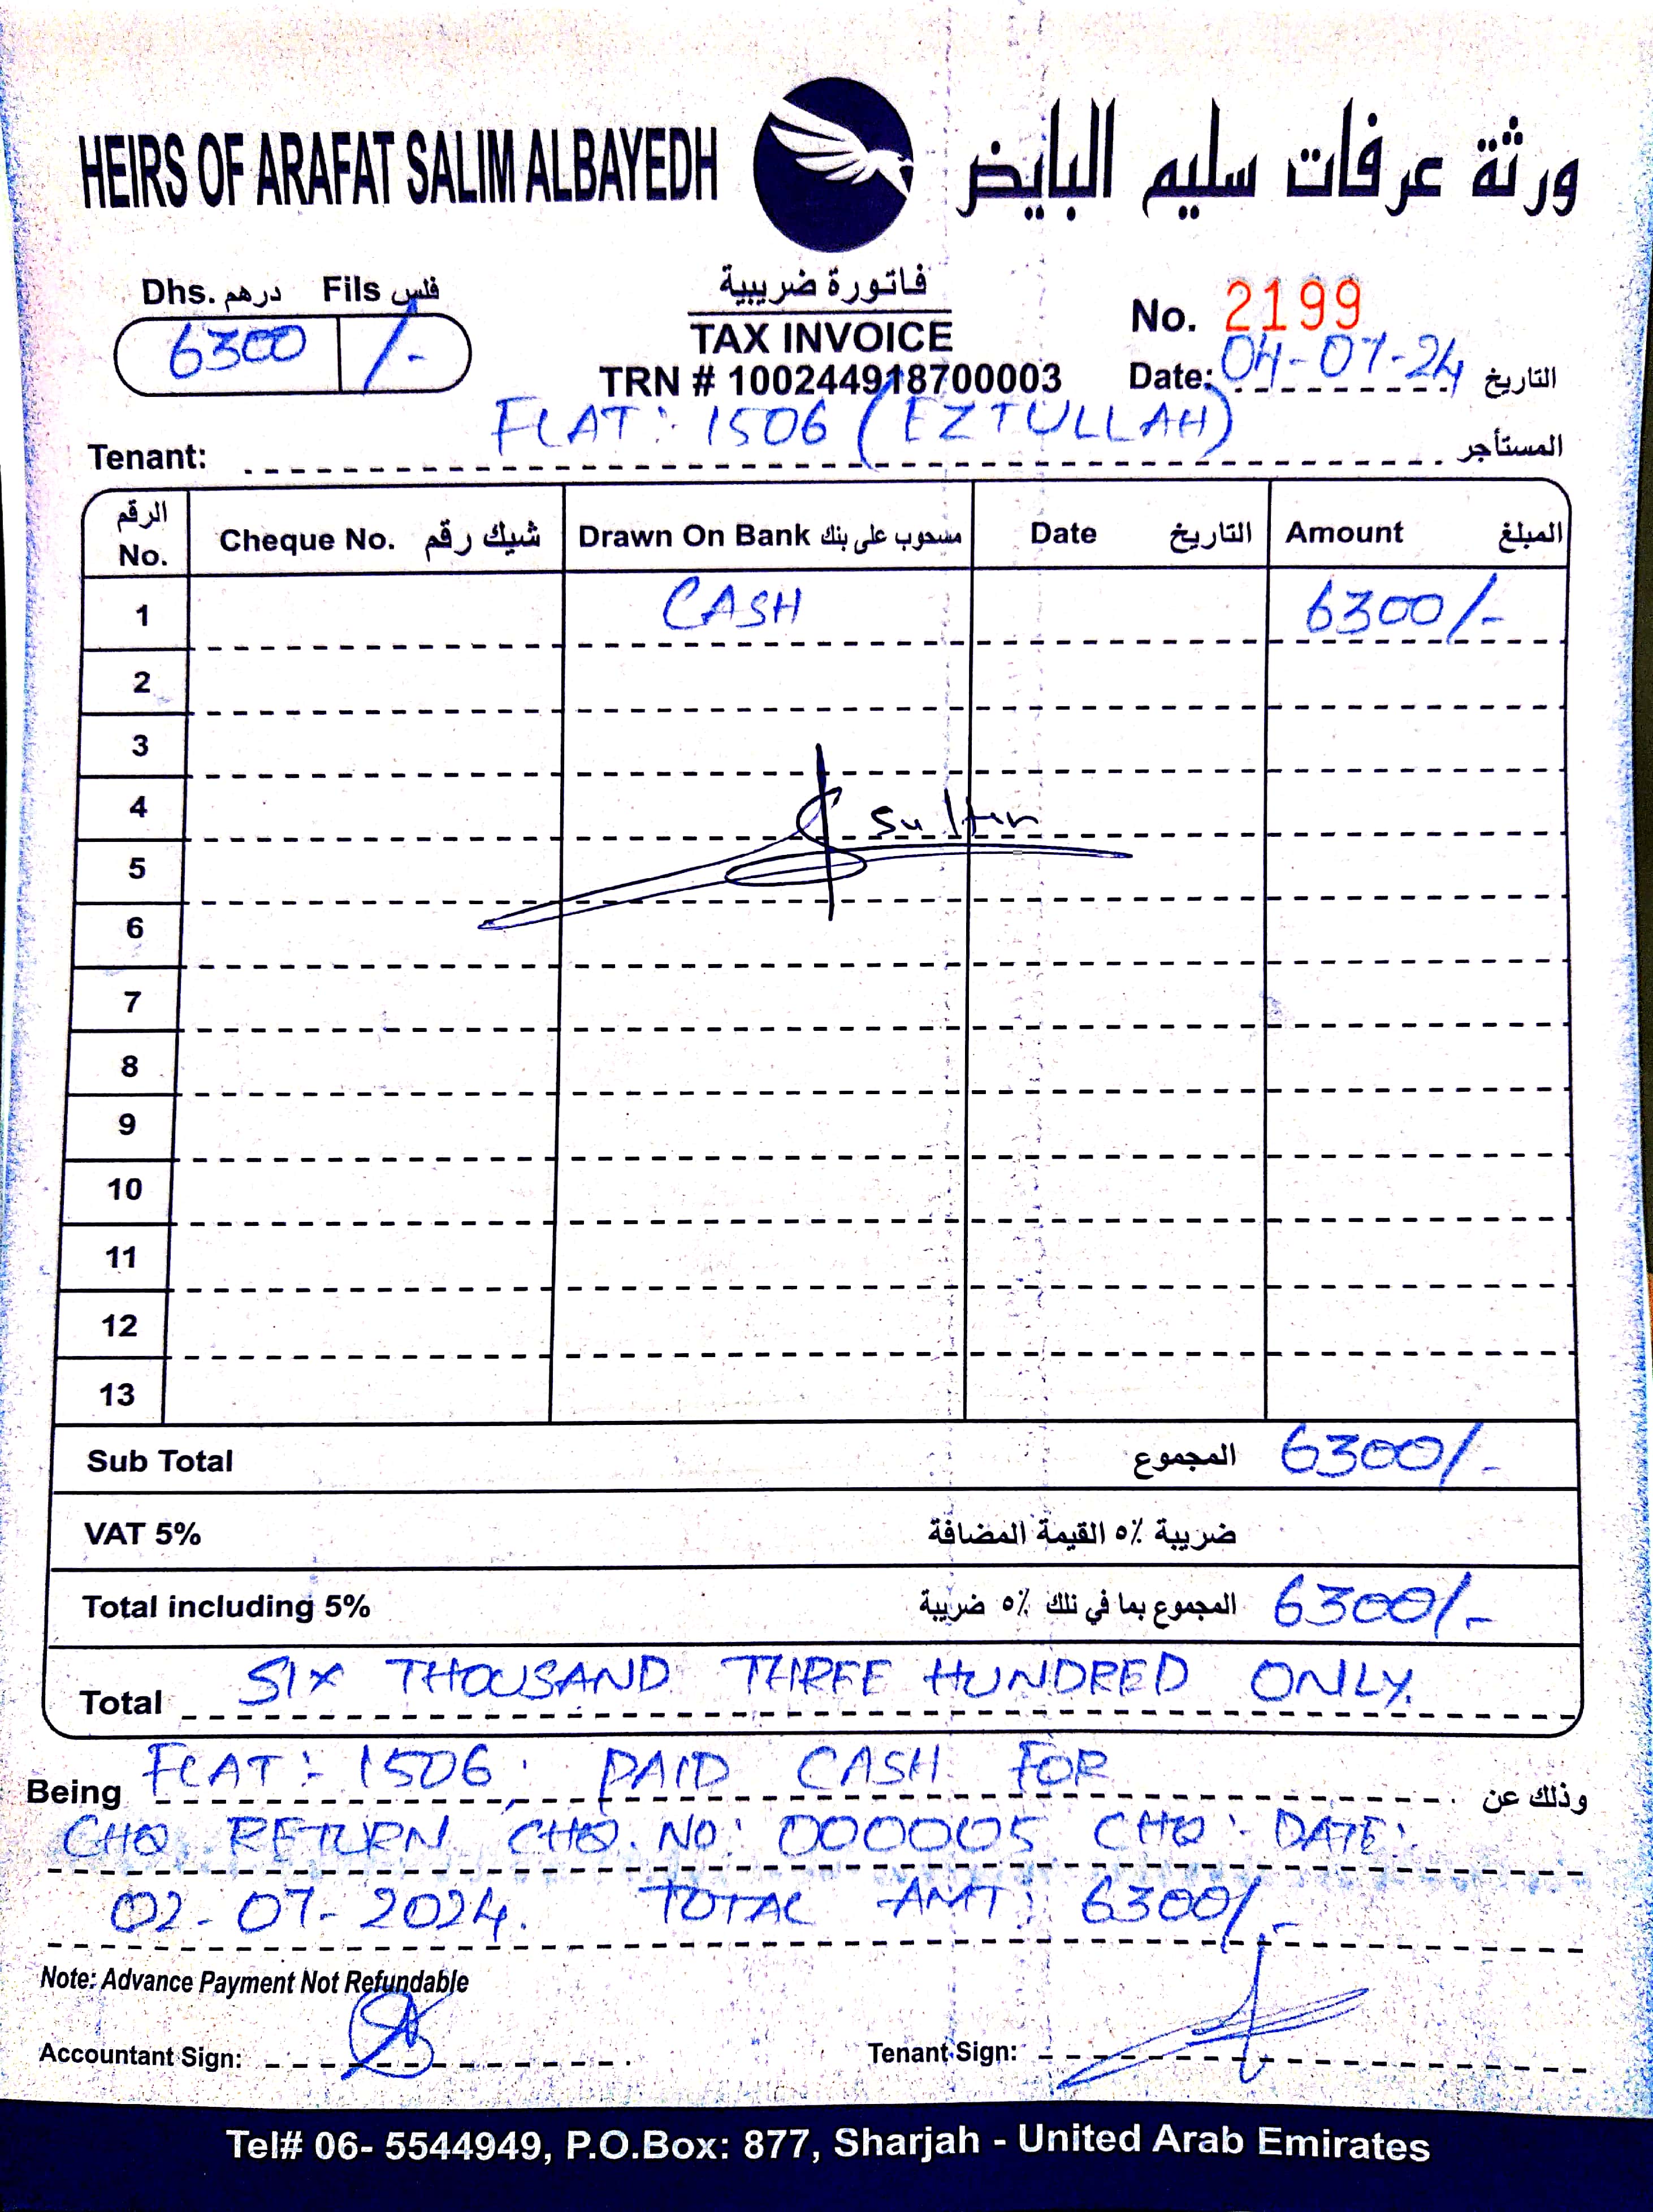 HEIRS OF ARAFAT SALIM ALBAYEDH ورثة عرفات سليم البايض
Dhs. درهم Fils فلس
6300 /-
فاتورة ضريبية
TAX INVOICE
TRN # 100244918700003
No. 2199
Date: 04-07-24 التاريخ
Tenant: FLAT:- 1506 (EZTULLAH) المستأجر
الرقم No. Cheque No. شيك رقم Drawn On Bank مسحوب على بنك Date التاريخ Amount المبلغ
1 CASH 6300/-
2
3
4 Sultan
5
6
7
8
9
10
11
12
13
Sub Total المجموع 6300/-
VAT 5% ضريبة ٥٪ القيمة المضافة
Total including 5% المجموع بما في تلك ٥٪ ضريبة 6300/-
Total SIX THOUSAND THREE HUNDRED ONLY.
Being FLAT:- 1506, PAID CASH FOR وذلك عن
CHQ RETURN CHQ. NO: 000005 CHQ:- DATE:-
02-07-2024. TOTAL AMT: 6300/-
Note: Advance Payment Not Refundable
Accountant Sign: Tenant Sign:
Tel# 06- 5544949, P.O.Box: 877, Sharjah - United Arab Emirates